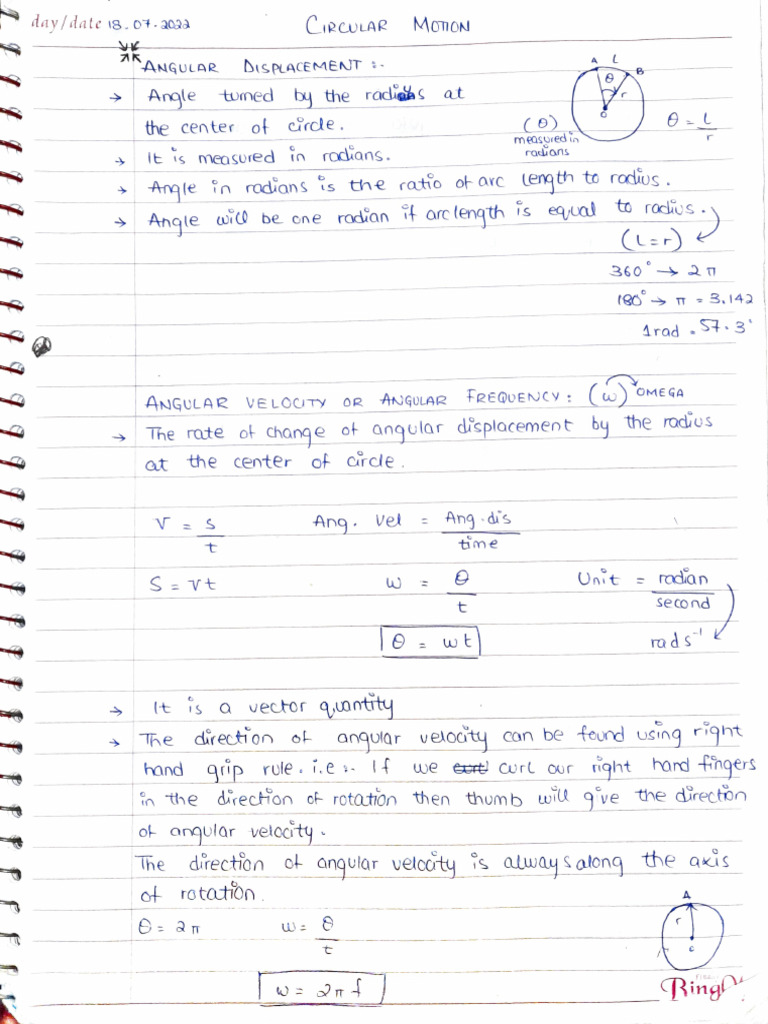 day/date 18.07.2022 CIRCULAR MOTION
ANGULAR DISPLACEMENT :-
→ Angle turned by the radius at
the center of circle.
A L B
θ
r
c
θ = L/r
(θ)
measured in
radians
→ It is measured in radians.
→ Angle in radians is the ratio of arc length to radius.
→ Angle will be one radian if arc length is equal to radius.
(L=r)
360° → 2π
180° → π = 3.142
1rad = 57.3°
ANGULAR VELOCITY OR ANGULAR FREQUENCY: (w) OMEGA
→ The rate of change of angular displacement by the radius
at the center of circle.
V = s/t Ang. Vel = Ang.dis/time
S = vt w = θ/t Unit = radian/second
θ = wt rad s⁻¹
→ It is a vector quantity
→ The direction of angular velocity can be found using right
hand grip rule. i.e :- If we curl our right hand fingers
in the direction of rotation then thumb will give the direction
of angular velocity.
The direction of angular velocity is always along the axis
of rotation.
θ = 2π w = θ/t
A
r
c
w = 2πf